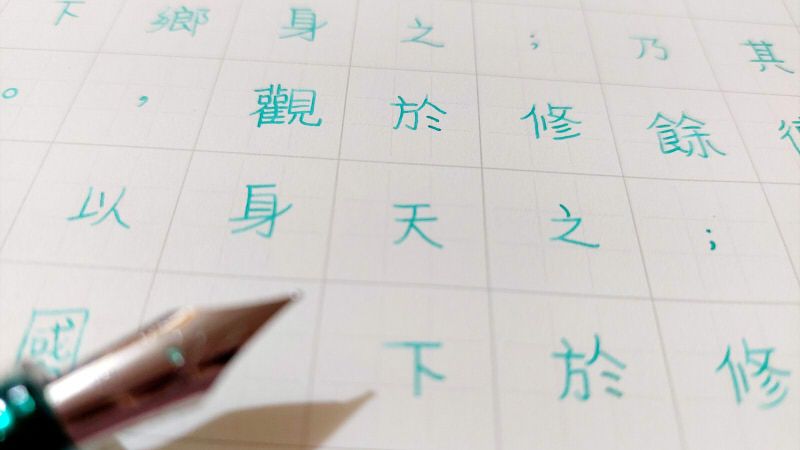 其
乃餘；修
；修之於
之於天下
身觀身
鄉，以國
下。